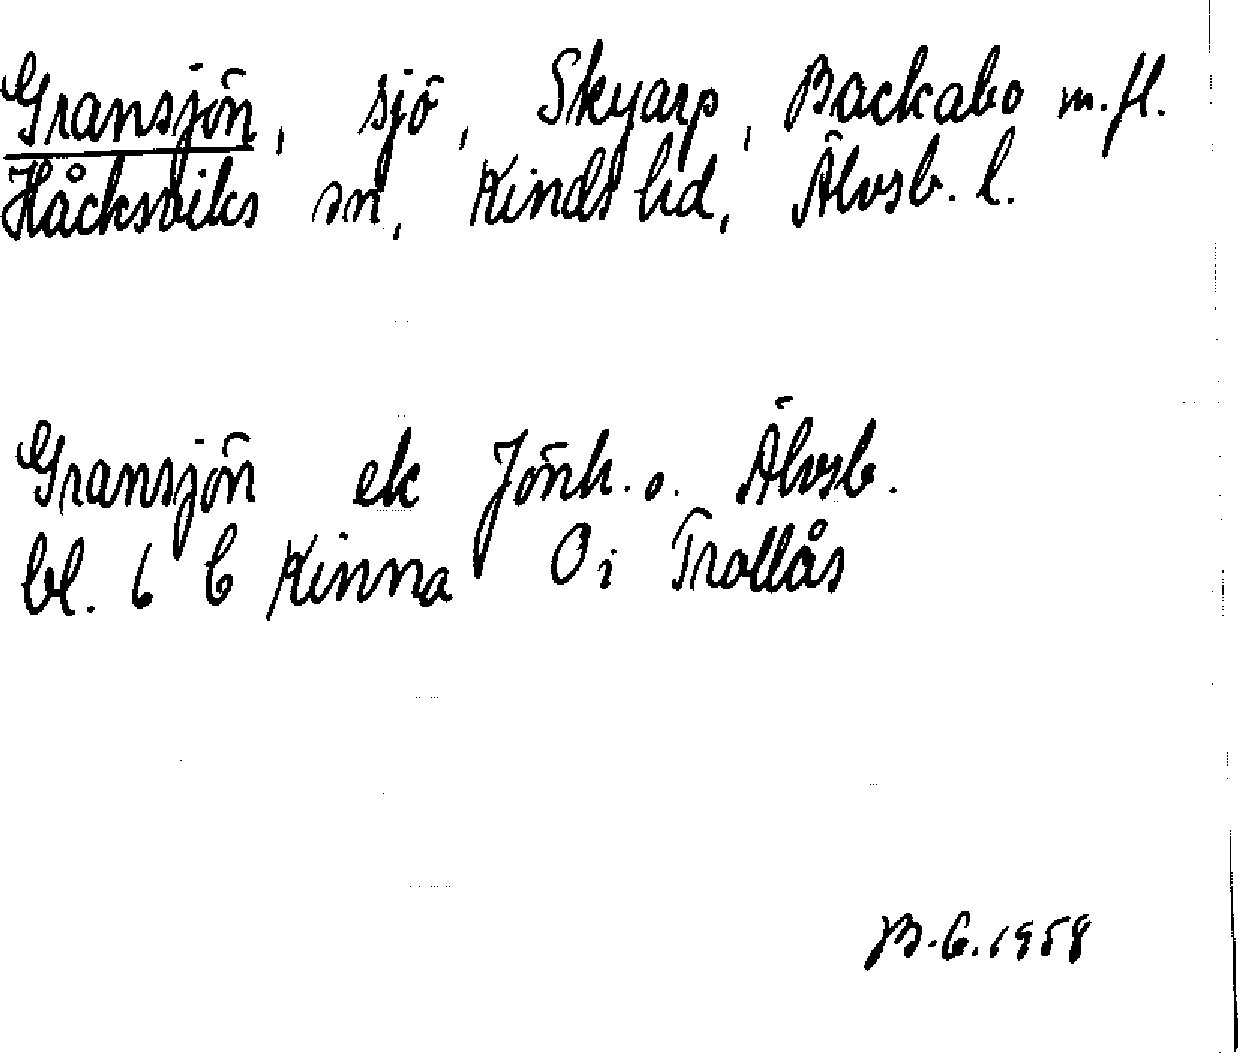 Gransjön, sjö, Skyarp, Backabo m.fl.
Håcksviks sn, Kinds hd, Älvsb. l.
Gransjön ek Jönk. o. Älvsb.
bl. 6 C Kinna O i Trollås
B.G. 1958